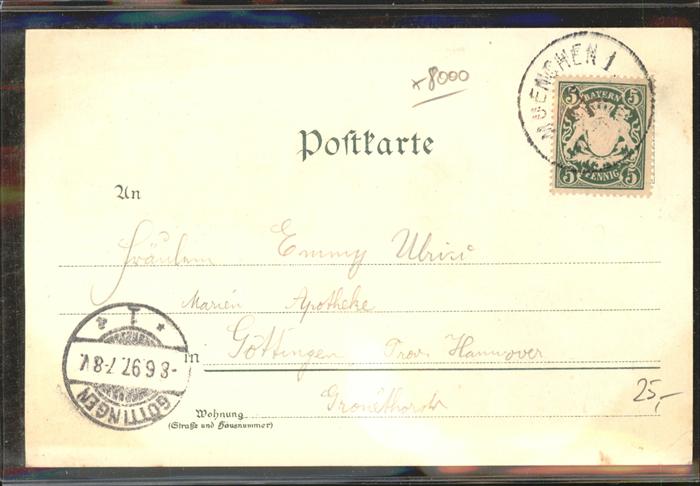 x 8000
MUENCHEN 1
5 BAYERN 5
5 PFENNIG 5
Postkarte
An
Fräulein Emmy Ulrici
Marien Apotheke
in Göttingen Prov. Hannover
Wohnung
(Straße und Hausnummer)
* 1 *
-8 6 97. 7-8 V.
GÖTTINGEN
25,-